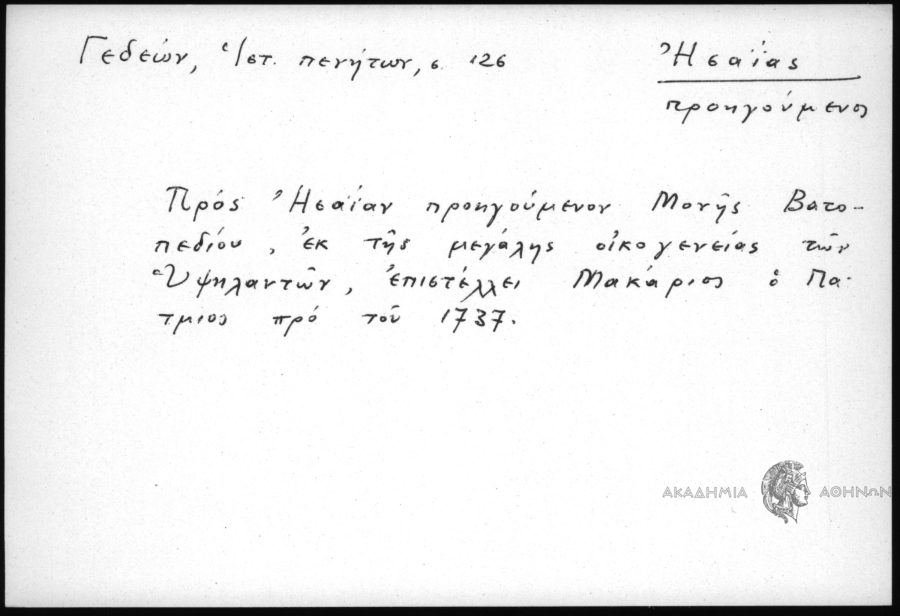 Γεδεών, Ἱστ. πενήτων, σ. 126
Ἠσαΐας
προηγούμενος
Πρός Ἠσαΐαν προηγούμενον Μονῆς Βατο-
πεδίου, ἐκ τῆς μεγάλης οἰκογενείας τῶν
Ὑψηλαντῶν, ἐπιστέλλει Μακάριος ὁ Πά-
τμιος πρό τοῦ 1737.
ΑΚΑΔΗΜΙΑ ΑΘΗΝΩΝ